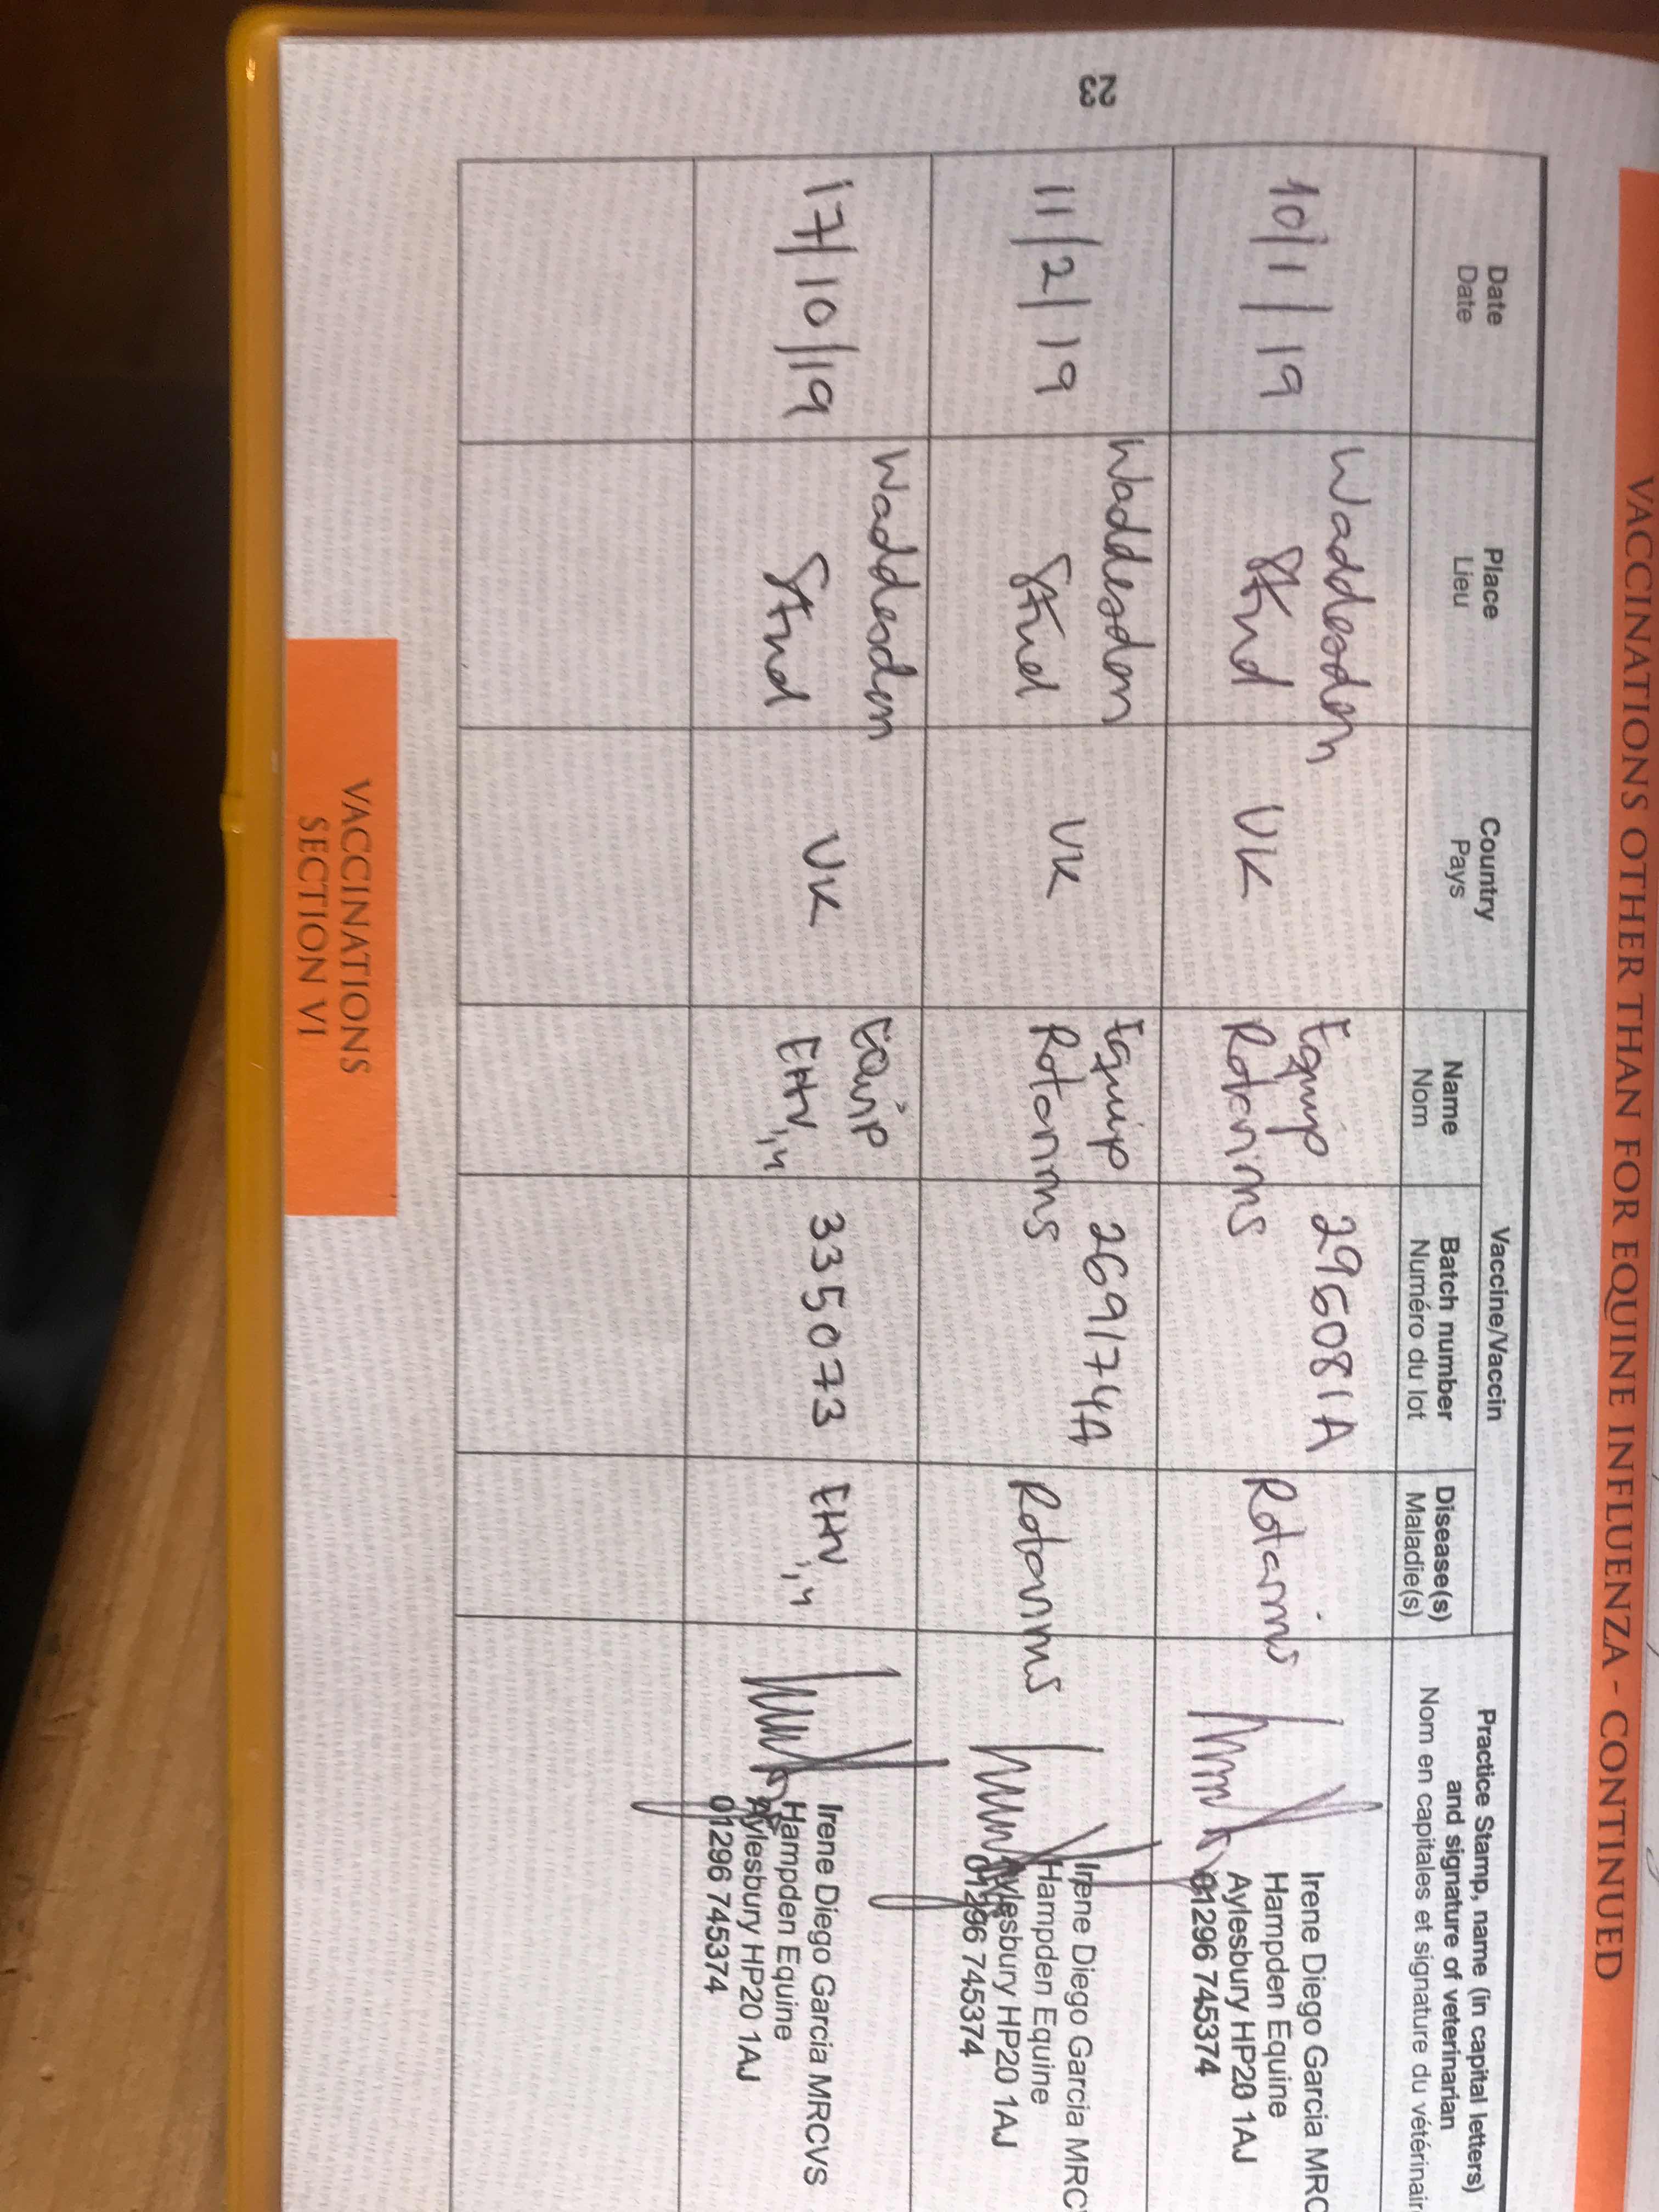 VACCINATIONS OTHER THAN FOR EQUINE INFLUENZA - CONTINUED
Date
Date
Place
Lieu
Country
Pays
Vaccine/Vaccin
Name
Nom
Batch number
Numéro du lot
Disease(s)
Maladie(s)
Practice Stamp, name (in capital letters)
and signature of veterinarian
Nom en capitales et signature du vétérinair
10/1/19
Waddesdon
Stud
UK
Equip
Rotavirus
296081A
Rotavirus
Irene Diego Garcia MRC
Hampden Equine
Aylesbury HP20 1AJ
01296 745374
11/2/19
Waddesdon
Stud
UK
Equip
Rotavirus
269174A
Rotavirus
Irene Diego Garcia MRC
Hampden Equine
Aylesbury HP20 1AJ
01296 745374
17/10/19
Waddesdon
Stud
UK
Equip
EHV1,4
335073
EHV1,4
Irene Diego Garcia MRCVS
Hampden Equine
Aylesbury HP20 1AJ
01296 745374
23
VACCINATIONS
SECTION VI